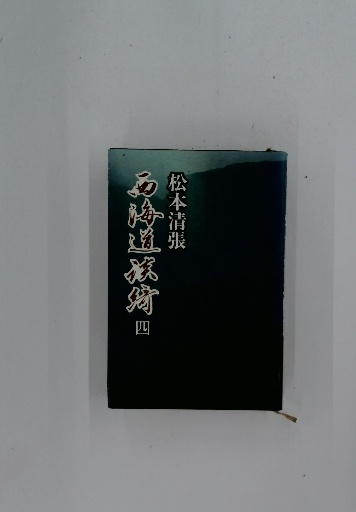 松本清張
西海道談綺
四